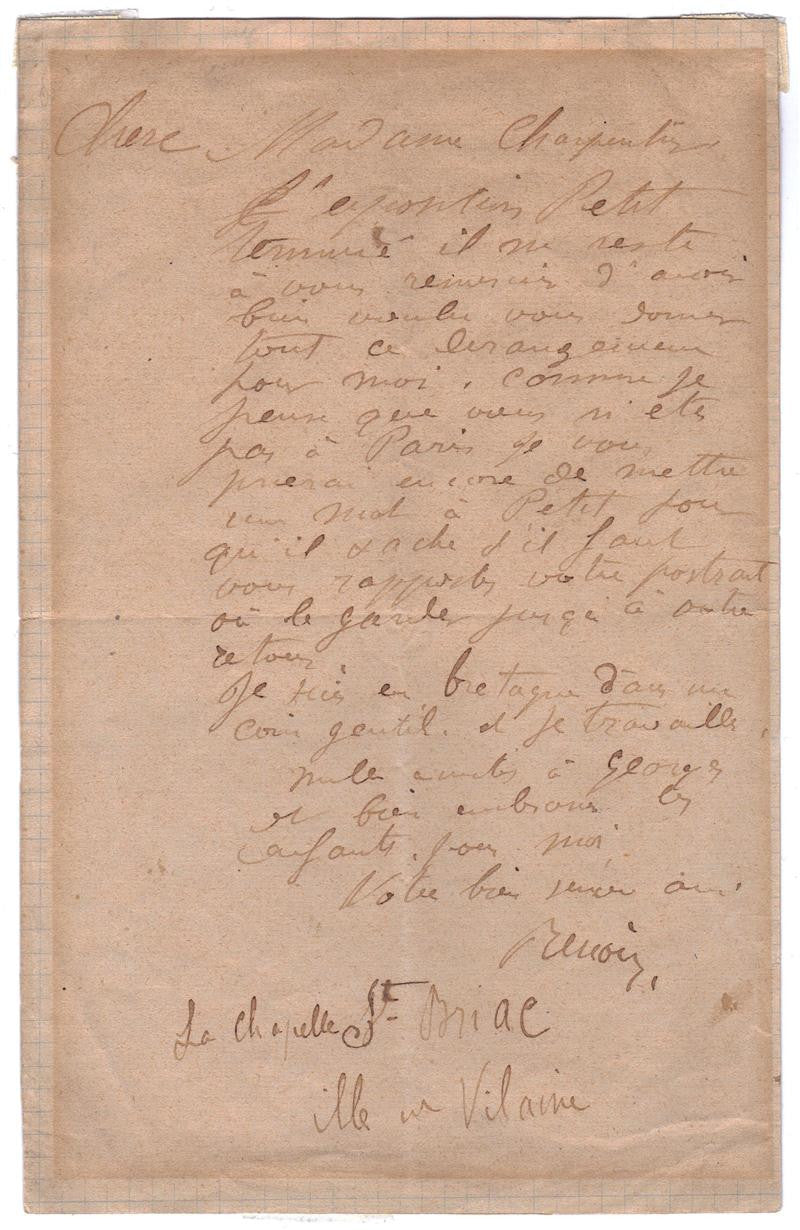 Chere Madame Charpentier
L'exposition Petit
terminé il ne reste
à vous remercier d'avoir
bien voulu vous donner
tout ce derangement
pour moi. comme je
pense que vous n'etes
pas à Paris je vous
prierai encore de mettre
un mot à Petit pour
qu'il sache s'il faut
vous rapporter votre portrait
où le garder jusqu'à votre
retour.
Je suis en bretagne dans un
coin gentil. et je travaille.
mille amities à Georges
et bien embrasser les
enfants. pour moi
Votre bien sincere ami
Renoir,
La chapelle St Briac
ille et Vilaine